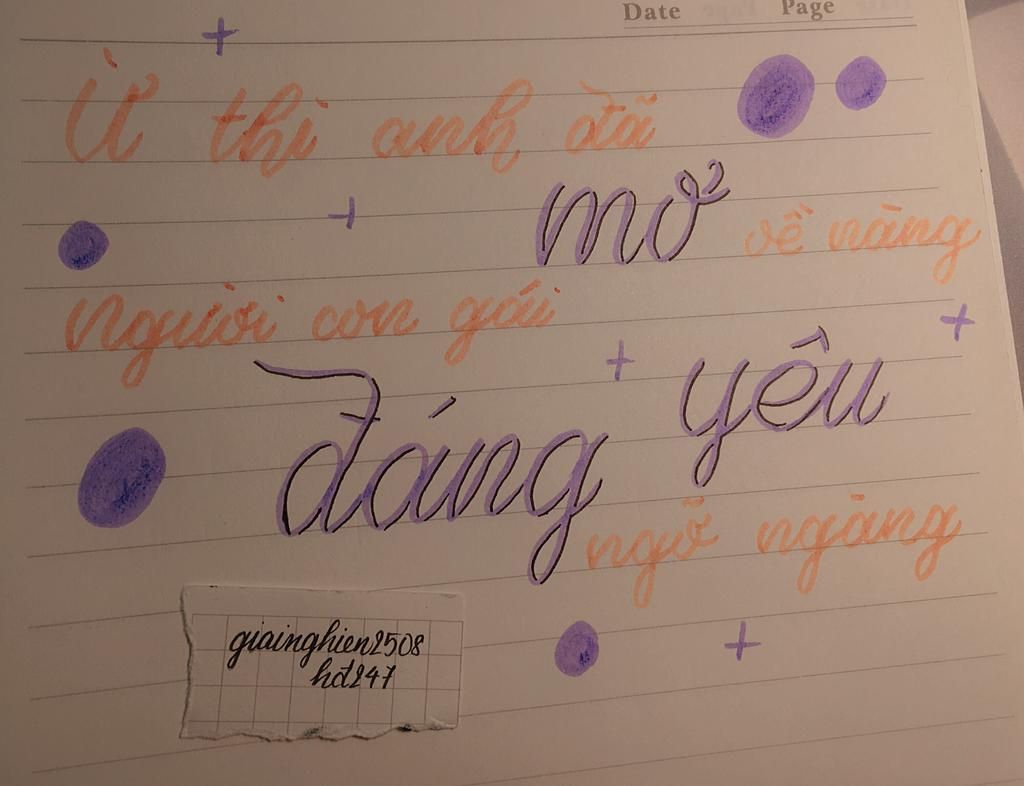 Date Page
Ừ thì anh đã
mơ về nàng
Người con gái
đáng yêu
ngỡ ngàng
giainghien2508
hđ247